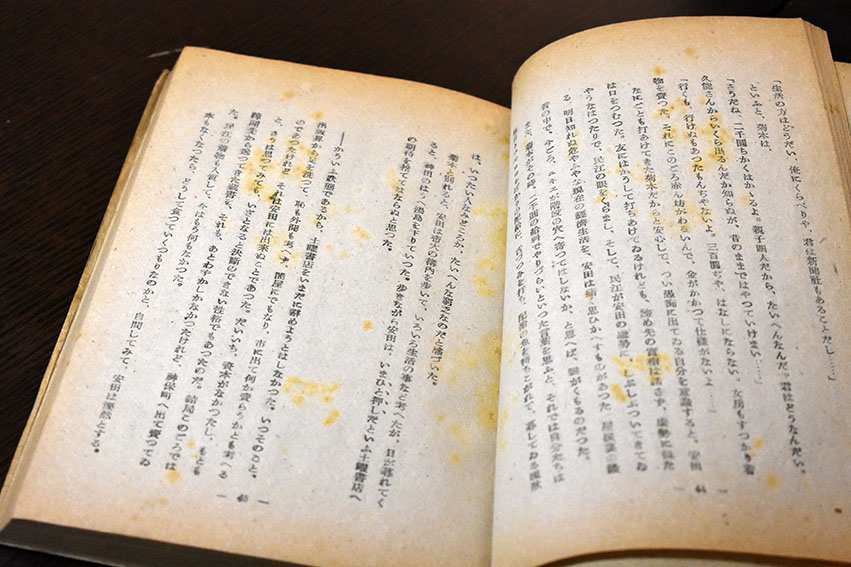 「生活の方はどうだい、俺にくらべりや、君は新聞社もあることだし……」
といふと、菊木は、
「さうだね、二千圓ちかくはかゝるよ。親子四人だから、たいへんなんだ。君はどうなんだい。
久能さんからいくら出るんだか知らぬが、昔のままではやつていけまい……」
「行くも、行けぬもあつたもんぢやないよ。三百圓ぢや、はなしにならない。女房もすつかり着
物を賣つた。それにこのごろ赤ん坊がわるいんで、金がかかつて仕様がないよ……」
なにごとも打あけてきた菊木だからと安心して、つい愚痴に出てゐる自分を意識すると、安田
は口をつむつた。友にはかうして打ちあけてゐるけれども、勤め先の實相は話さず、虚勢に似た
やうなはつたりで、民江の眼をくらまし、そして、民江が安田の虚勢に
る、明日知れぬ危やふやな現在の經濟生活を、安田は
君の中で、今どろ、ユキエが階段の穴へ寄つてはしないか、と思へば、胸がくもるのだつた。
また、菊木がその時、二千圓の給料でやりづらいといつた言葉を思ふと、それでは自分たちは
― 44 ―
は、いつたい人なみどころか、たいへんな窮乏なのだと感づいた。
菊木と別れると、安田は帝大の構内を歩いて、いろいろ生活の事など考へたが、日が暮れてく
ると、神田のはう、湯島を下りていつた。歩きながら安田は、いまひと押しだといふ土曜書店へ
の期待を捨ててはならぬと思つた。
――かういふ狀態であるから、土曜書店をいまだに辭めようとはしなかつた。いつそのこと、
出版屋から足を洗つて、恥も外聞も考へず、闇屋にでもなり、市に出て何か賣らうかとも考へる
のであつたけれど、それは安田には出來ぬことであつた。だいいち、資本がなかつたし、もとも
と、さうは思つてみても、いざとなると決斷のできない性格でもあつたのだ。結局このごろでは
疎開先から送つてきた藏書を、それも、あとわずかしかなかつたけれど、神保町へ出て賣つてゐ
た。民江の着物も入質して、今はもう何もなかつた。
本もなくなつたら、どうして食つていくつもりなのかと、自問してみて、安田は慄然とする。
― 45 ―